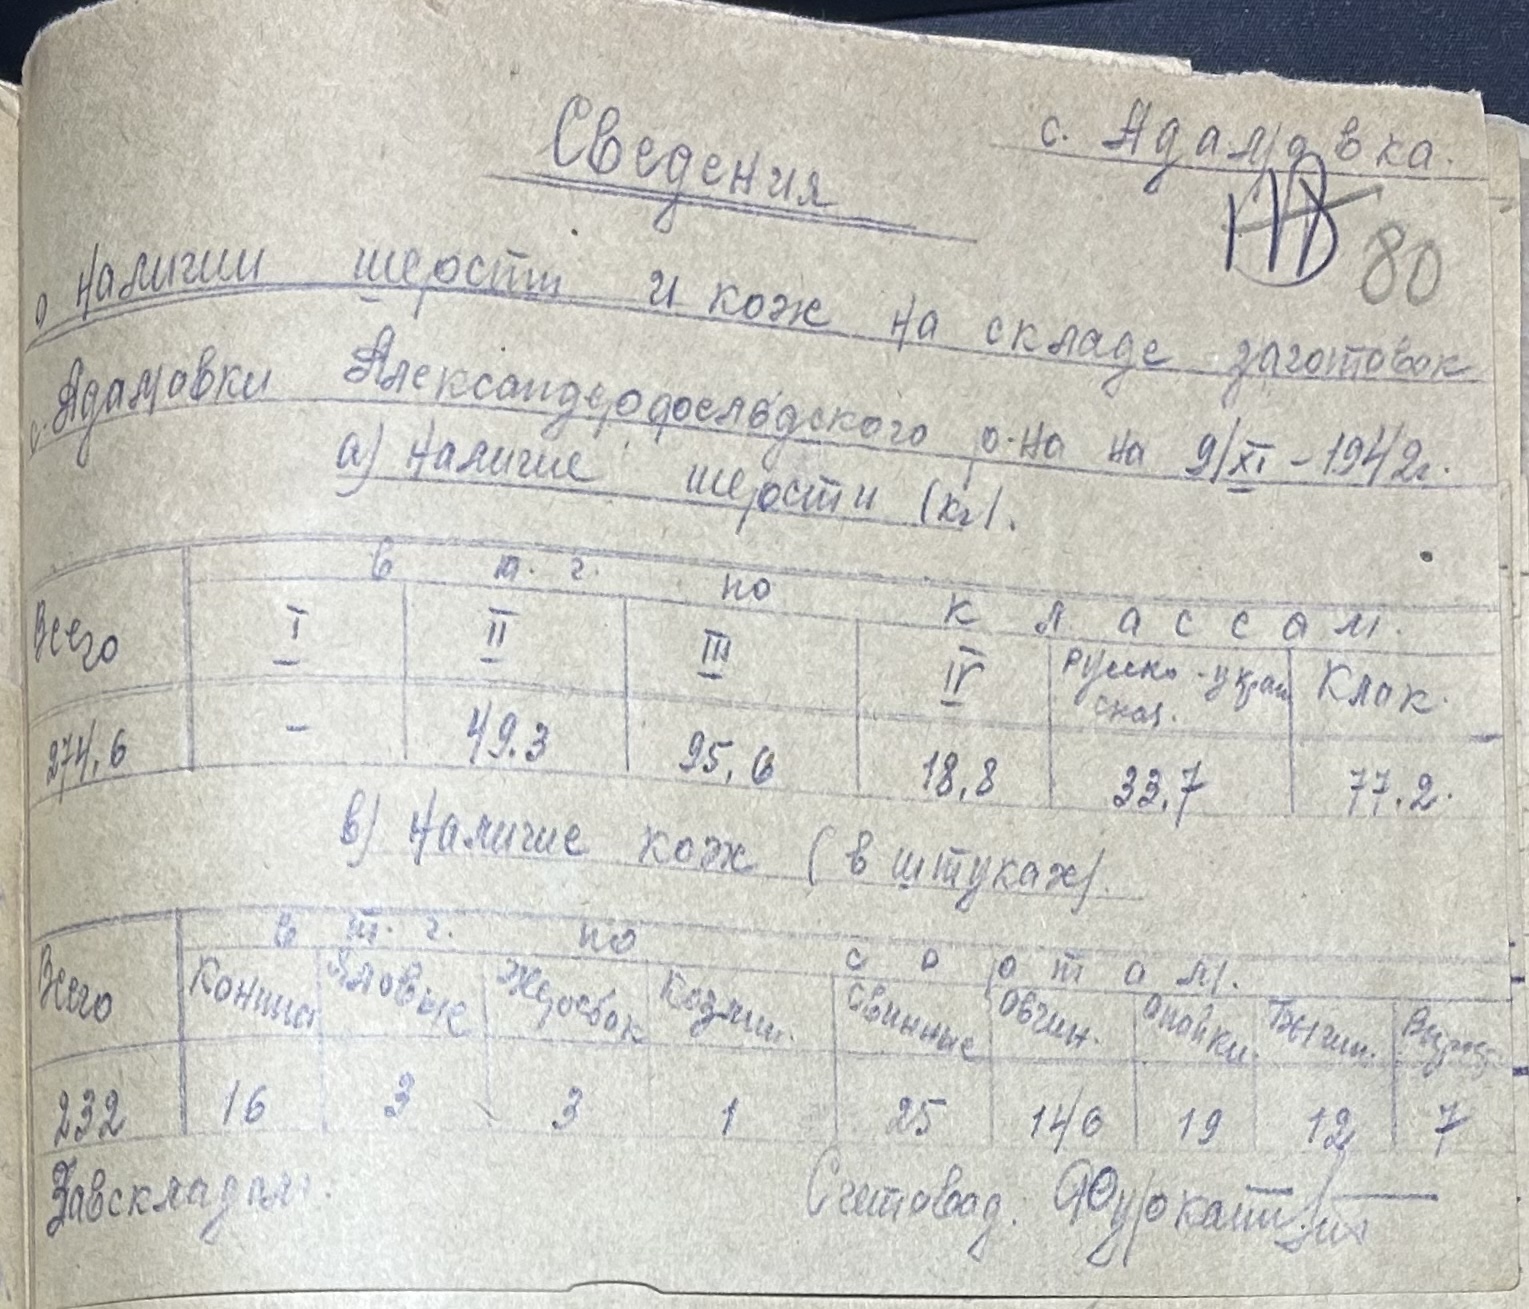 с. Адамовка.
Сведения
80
о наличии шерсти и кож на складе заготовок
с. Адамовки Александродосльдского р-на на 9/XI – 1942г.
а) Наличие шерсти (кг).
Всего в т. ч. по классам.
I II III IV Русско-украи Клок.
ская.
274,6 – 49.3 95,6 18,8 33,7 77.2.
в) Наличие кож (в штуках).
Всего в т. ч. по сортам.
Конина Яловые Жеребок Козлин. Свинные Овчин. Опойки Бычин.
232 16 3 3 1 25 146 19 12 7
Завскладом. Счетовод: